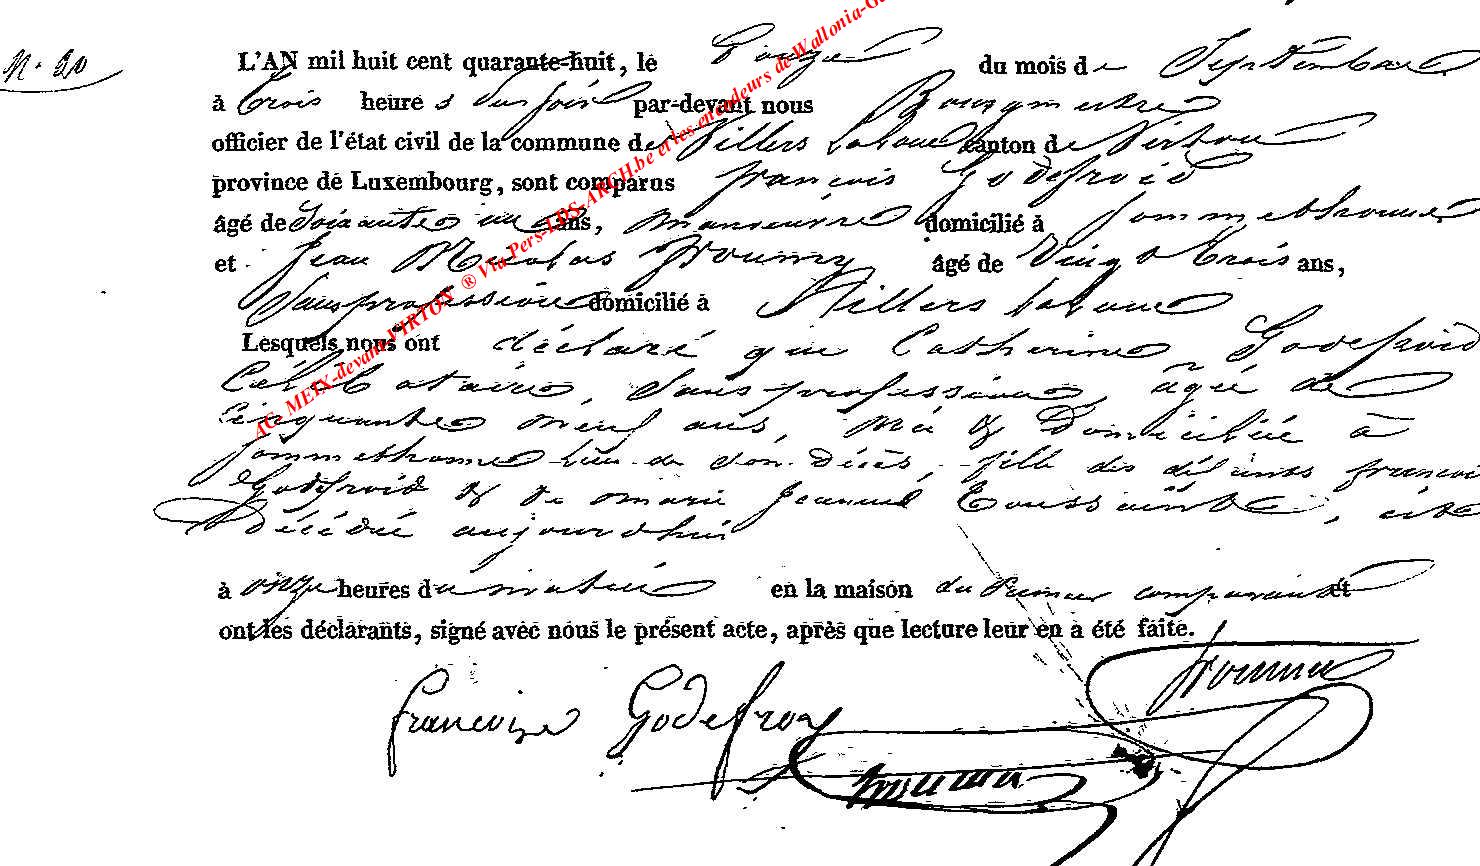 N° 20
L'AN mil huit cent quarante-huit, le Douze du mois de Septembre
à trois heures du soir par-devant nous Bourgmestre
officier de l'état civil de la commune de Villers Laloue canton de Virton
province de Luxembourg, sont comparus françois Godefroid
âgé de soixante un ans, manoeuvre domicilié à Sommethonne
et Jean Nicolas âgé de Vingt trois ans,
Sans profession domicilié à Villers Laloue
Lesquels nous ont déclaré que Catherine Godefroid
Célibataire, Sans profession, âgée de
Cinquante neuf ans, née & Domiciliée à
Sommethonne lieu de son décès, fille des défunts françois
Godefroid & de marie Jeanne Toussaint, est
Décédée aujourdhui
à onze heures du matin en la maison du Premier comparant et
ont les déclarants, signé avec nous le présent acte, après que lecture leur en a été faite.
francoise Godefroy
AC MEIX-devant-VIRTON ® Via Pers-LDS-ARCH.be et les encodeurs de Wallonia-G